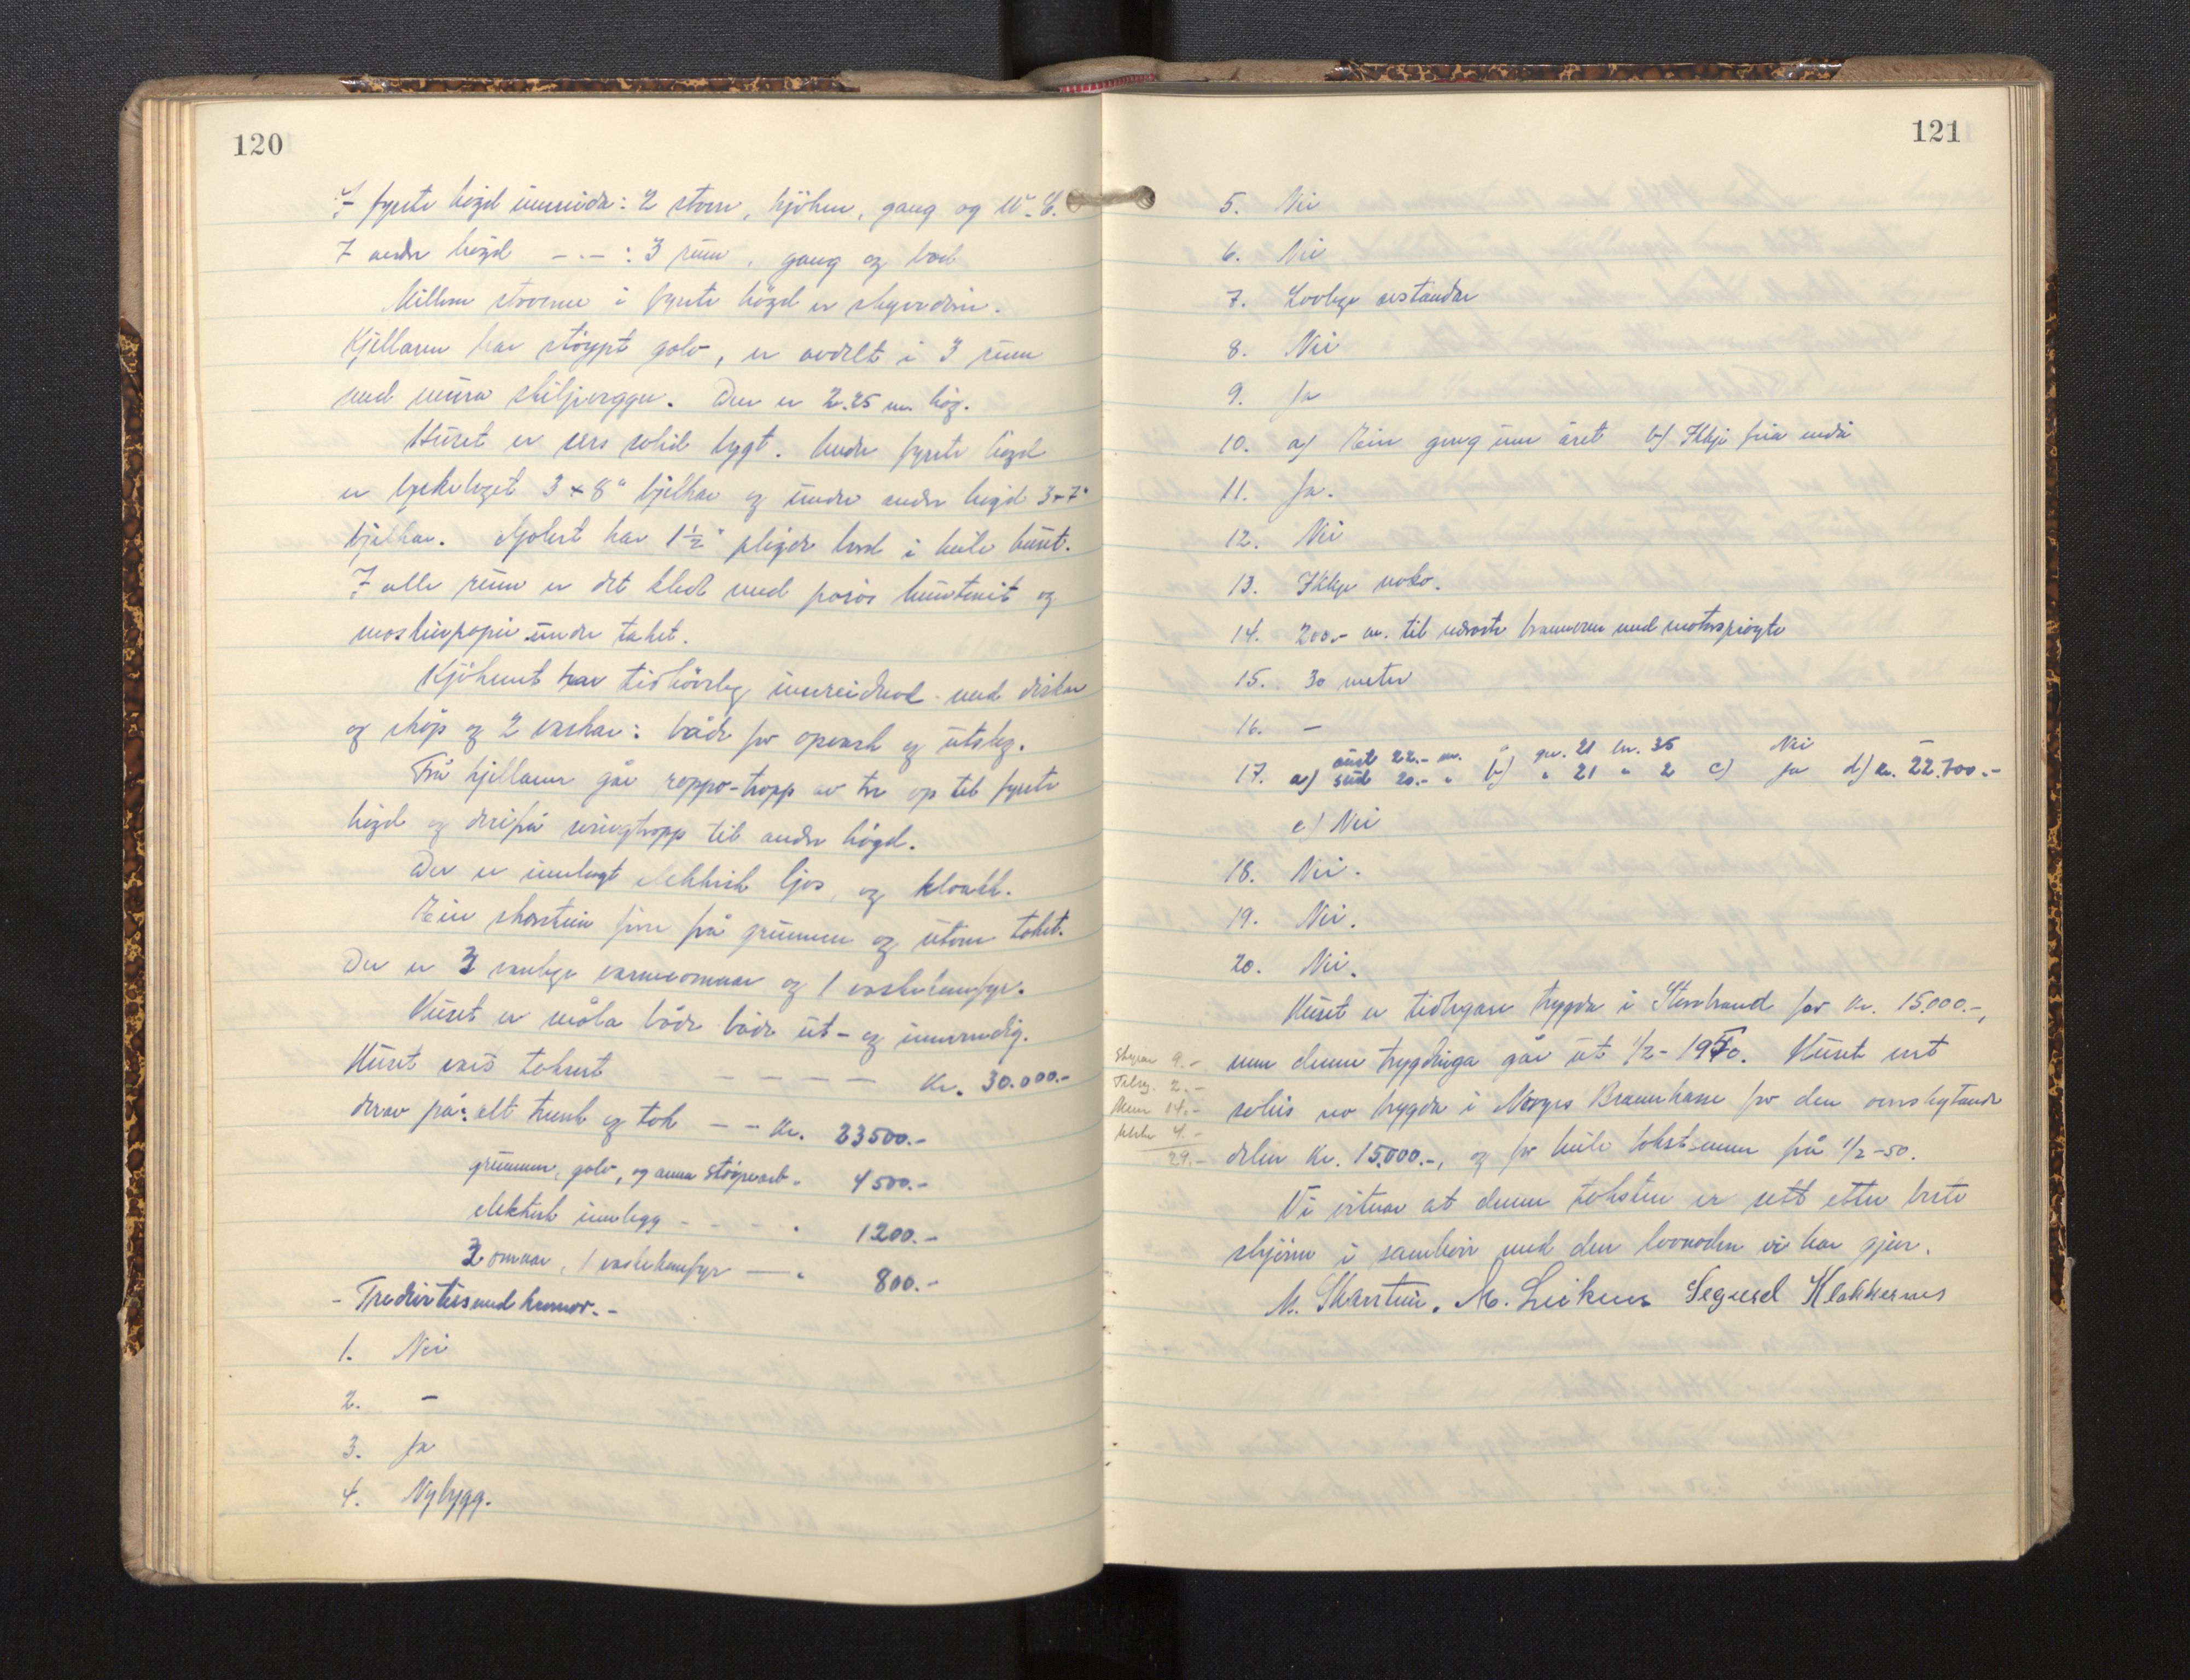 120
I fyrste högd innreida: 2 stover, kjöken, gang og W.C.
I andre högd — . — : 3 rum, gang og bad
Millom stovene i fyrste högd er skyvedör.
Kjellaren har stöypt golv, er avdelt i 3 rum
med mura skiljevegger. Den er 2.25 m. hög.
Huset er sers solid bygt. Under fyrste högd
er bjelkelaget 3 x 8" bjelkar og under andre högd 3 x 7"
bjelkar. Golvet har 1½" pløgde bord i heile huset.
I alle rum er det kledt med porös huntonit og
maskinpapir under taket.
Kjökenet har tidhöveleg innreidnad med diskar
og skåp og 2 vaskar: både for opvask og utslag.
Frå kjellaren går reppo-tropp av tre op til fyrste
högd og derifrå svingtropp til andre högd.
Der er innlagt elektrisk ljos, og kloakk.
Ein skorstein före frå grunnen og utom taket.
Der er 3 vanlege varmeomnar og 1 vaskekumfyr.
Huset er måla både både ut- og innvendig.
Huset vart taksert — — — — — kr. 30.000.-
derav på: alt treverk og tak — - kr. 23500.-
grunnen, golv, og anna stöypearb. " 4500.-
elektrisk innlegg - - - " 1200.-
3 omnar, 1 vaskekumfyr — " 800.-
1. Nei
2. -
3. Ja
4. Nybygg.
121
5. Nei
6. Nei
7. Lovlege avstandar
8. Nei
9. Ja
10. a) Ein gong um året b) Ikkje feia endå
11. Ja.
12. Nei
13. Ikkje noko.
14. 200.- m. til næraste brannvern med motorspröyte
15. 30 meter
16. —
aust 22.- m. gnr. 21 bnr. 35 Nei —
17. a) sud 20.- " b) " 21 " 2 c) Ja d) kr. 22.700.-
e) Nei
18. Nei.
19. Nei.
20. Nei.
Huset er tidlegare trygda i Storebrand for kr. 15.000.-,
Skyss 9.-
men denne trygdinga går ut 1/2-1950. Huset vert
2.-
14.-
soleis no trygda i Norges Brannkasse for den overskytande
4.-
29.-
delen kr. 15.000.-, og for heile takstsummen frå 1/2-50.
Vi vitnar at denne taksten er sett etter beste
skjönn i samhøve med den lovnaden vi har gjeve.
M. Skarstein. M. Leiknes Segurd Klakkernes